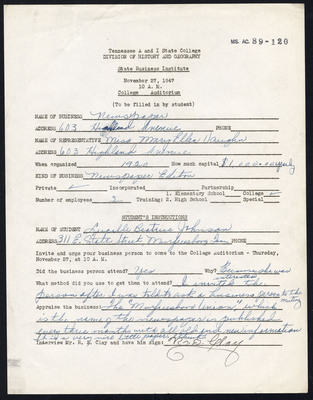 MS. AC. 89-120
Tennessee A and I State College
DIVISION OF HISTORY AND GEOGRAPHY
State Business Institute
November 27, 1947
10 A. M.
College Auditorium
(To be filled in by student)
NAME OF BUSINESS Newspaper
ADDRESS 603 Highland Avenue PHONE
NAME OF REPRESENTATIVE Miss Vaughn
ADDRESS 603 Highland Avenue PHONE
When organized 1920 How much capital $1,000
KIND OF BUSINESS Newspaper Editor
Private ✓ Incorporated Partnership
1. Elementary School College ✓
Number of employees 2 Training: 2. High School Special
STUDENT'S INSTRUCTIONS
NAME OF STUDENT Lucille Beatrice Johnson
ADDRESS 311 E. State Street Murfreesboro PHONE
Invite and urge your business person to come to the College Auditorium - Thursday,
November 27, at 10 A. M.
Did the business person attend? Yes Why? was
interested
What method did you use to get them to attend? I invited the
person after I was told to ask a business person to the
meeting
Appraise the business: The Murfreesboro Union, which
is the name of the newspaper is published
every three months with all old and new information
It is a very nice little paper
Interview Mr. R. E. Clay and have him sign: R. E. Clay